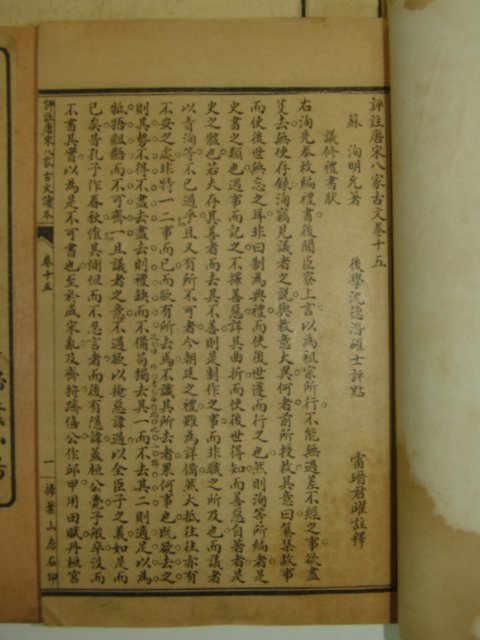 評註唐宋八家古文卷十五
蘇洵明允著 後學沈德潛確士評點 雷瑨君曜註釋
議修禮書狀
右洵先奉敕編禮書後聞臣寮上言以為祖宗所行不能無過差不經之事欲盡
芟去無使存錄洵竊見議者之說與敕意大異何者前所授敕其意曰纂集故事
而使後世無忘之耳非曰制為典禮而使後世遵而行之也然則洵等所編者是
史書之類也遇事而記之不擇善惡詳其曲折而使後世得知而善惡自著者是
史之體也若夫存其善者而去其不善則是制作之事而非職之所及也而議者
以責洵等不已過乎且又有所不可者今朝廷之禮雖為詳備然大抵往往亦有
不安之處非特一二事而已而欲有所去焉不識其所去者果何事也既欲去之
則其勢不得不盡去盡去則禮缺而不備苟獨去其一而不去其二則適足以為
牴牾齟齬而不可齊一且議者之意不過欲以掩惡諱過以全臣子之義如是而
已矣昔孔子作春秋惟其惻怛而不忍言者而後有隱諱蓋桓公薨子般卒沒而
不書其實以為是不可書也至於成宋亂及齊狩躋僖公作邱甲用田賦丹桓宮
評註唐宋八家古文讀本 卷十五 一 掃葉山房石印